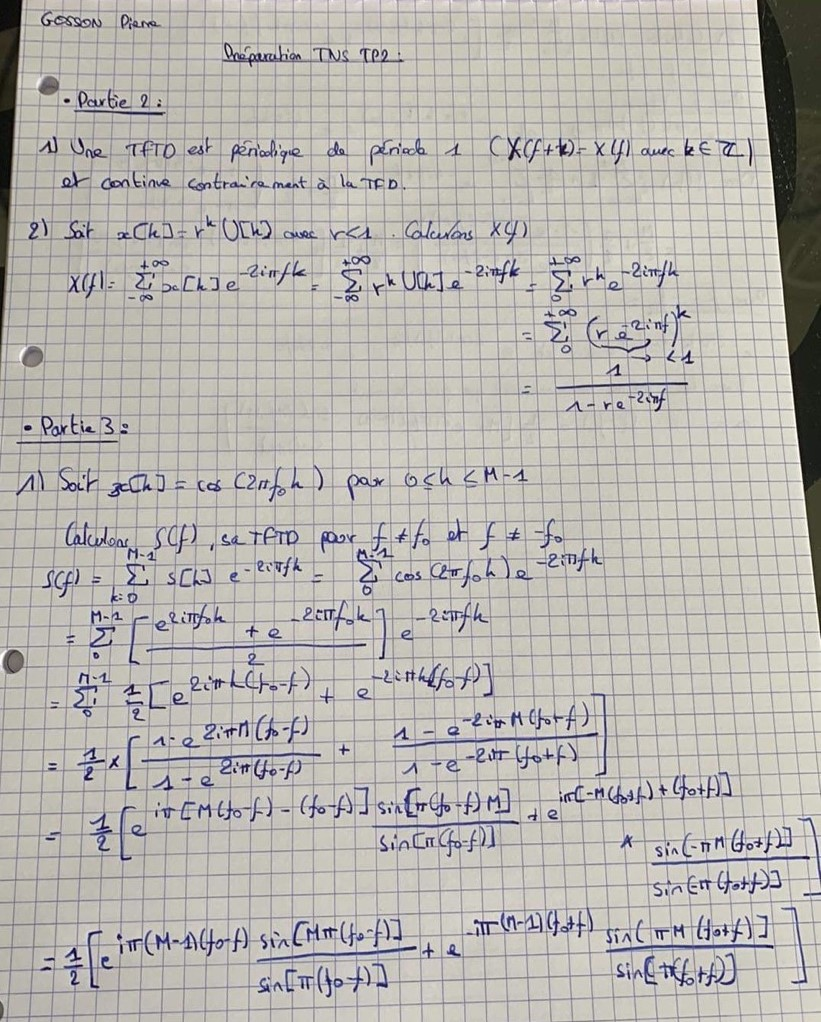 GOSSON Pierre
Préparation TNS TP2 :
• Partie 2 :
1) Une TFTD est périodique de période 1 (X(f+k) = X(f) avec k ∈ ℤ)
et continue contrairement à la TFD.
2) Soit x[k] = r^k U[k] avec r<1. Calculons X(f)
X(f) = Σ_{-∞}^{+∞} x[k] e^{-2iπfk} = Σ_{-∞}^{+∞} r^k U[k] e^{-2iπfk} = Σ_0^{+∞} r^k e^{-2iπfk}
= Σ_0^{+∞} (r e^{-2iπf})^k → <1
= 1 / (1 - r e^{-2iπf})
• Partie 3 :
1) Soit x[k] = cos (2πf₀k) par 0 ≤ k ≤ M-1
Calculons S(f), sa TFTD pour f ≠ f₀ et f ≠ -f₀
S(f) = Σ_{k=0}^{M-1} s[k] e^{-2iπfk} = Σ_0^{M-1} cos (2πf₀k) e^{-2iπfk}
= Σ_0^{M-1} [ (e^{2iπf₀k} + e^{-2iπf₀k}) / 2 ] e^{-2iπfk}
= Σ_0^{M-1} 1/2 [ e^{2iπk(f₀-f)} + e^{-2iπk(f₀-f)} ]
= 1/2 × [ (1 - e^{2iπM(f₀-f)}) / (1 - e^{2iπ(f₀-f)}) + (1 - e^{-2iπM(f₀+f)}) / (1 - e^{-2iπ(f₀+f)}) ]
= 1/2 [ e^{iπ[M(f₀-f) - (f₀-f)]} sin[π(f₀-f)M] / sin[π(f₀-f)] + e^{iπ[-M(f₀+f) + (f₀+f)]}
* sin(-πM(f₀+f)] / sin[-π(f₀+f)] ]
= 1/2 [ e^{iπ(M-1)(f₀-f)} sin[Mπ(f₀-f)] / sin[π(f₀-f)] + e^{-iπ(M-1)(f₀+f)} sin(πM(f₀+f)] / sin[π(f₀+f)] ]